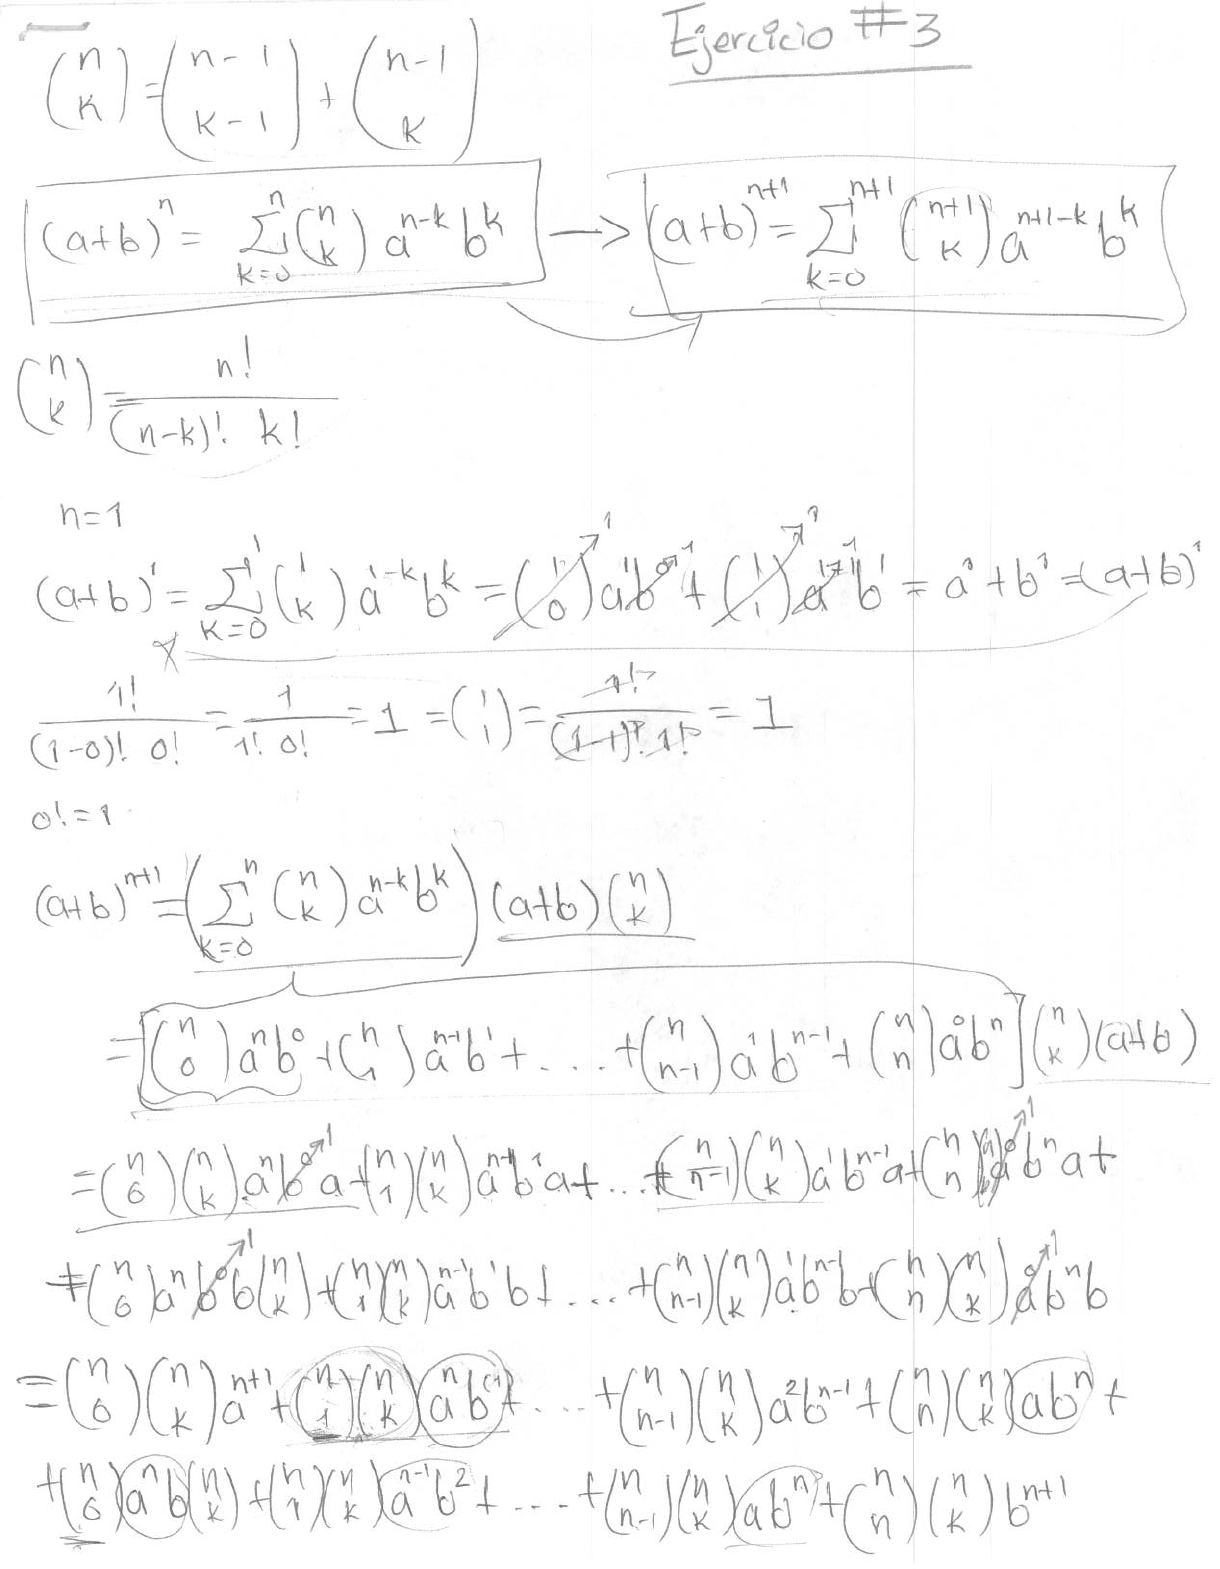 Ejercicio #3
(n k) = (n-1 k-1) + (n-1 k)
(a+b)^n = Σ_{k=0}^{n} (n k) a^{n-k} b^k → (a+b)^{n+1} = Σ_{k=0}^{n+1} (n+1 k) a^{n+1-k} b^k
(n k) = n! / (n-k)! k!
n=1
(a+b)^1 = Σ_{k=0}^{1} (1 k) a^{1-k} b^k = (1 0) a^1 b^0 + (1 1) a^{1-1} b^1 = a^1 + b^1 = (a+b)^1
1! / (1-0)! 0! = 1 / 1! 0! = 1 = (1 1) = 1! / (1-1)! 1! = 1
0! = 1
(a+b)^{n+1} = (Σ_{k=0}^{n} (n k) a^{n-k} b^k) (a+b) (n k)
= [(n 0) a^n b^0 + (n 1) a^{n-1} b^1 + .... + (n n-1) a^1 b^{n-1} + (n n) a^0 b^n] (n k) (a+b)
= (n 0)(n k) a^n b^0 a + (n 1)(n k) a^{n-1} b^1 a + ... + (n n-1)(n k) a^1 b^{n-1} a + (n n)(n k) a^0 b^n a +
+ (n 0) a^n b^0 b (n k) + (n 1)(n k) a^{n-1} b^1 b + .... + (n n-1)(n k) a^1 b^{n-1} b + (n n)(n k) a^0 b^n b
= (n 0)(n k) a^{n+1} + (n 1)(n k) a^n b^{(1)} + .... + (n n-1)(n k) a^2 b^{n-1} + (n n)(n k) a b^n +
+ (n 0) a^n b (n k) + (n 1)(n k) a^{n-1} b^2 + .... + (n n-1)(n k) a b^n + (n n)(n k) b^{n+1}